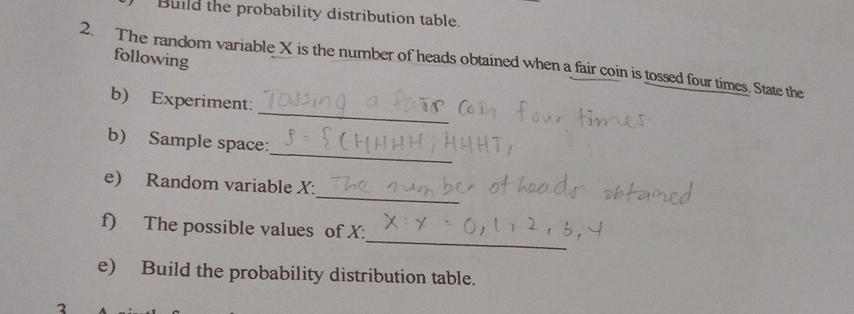 Build the probability distribution table.
2. The random variable X is the number of heads obtained when a fair coin is tossed four times. State the
following
b) Experiment: Tossing a fair coin four times
b) Sample space: S = {(HHHH, HHHT,
e) Random variable X: The number of heads obtained
f) The possible values of X: X: x = 0, 1, 2, 3, 4
e) Build the probability distribution table.
3.